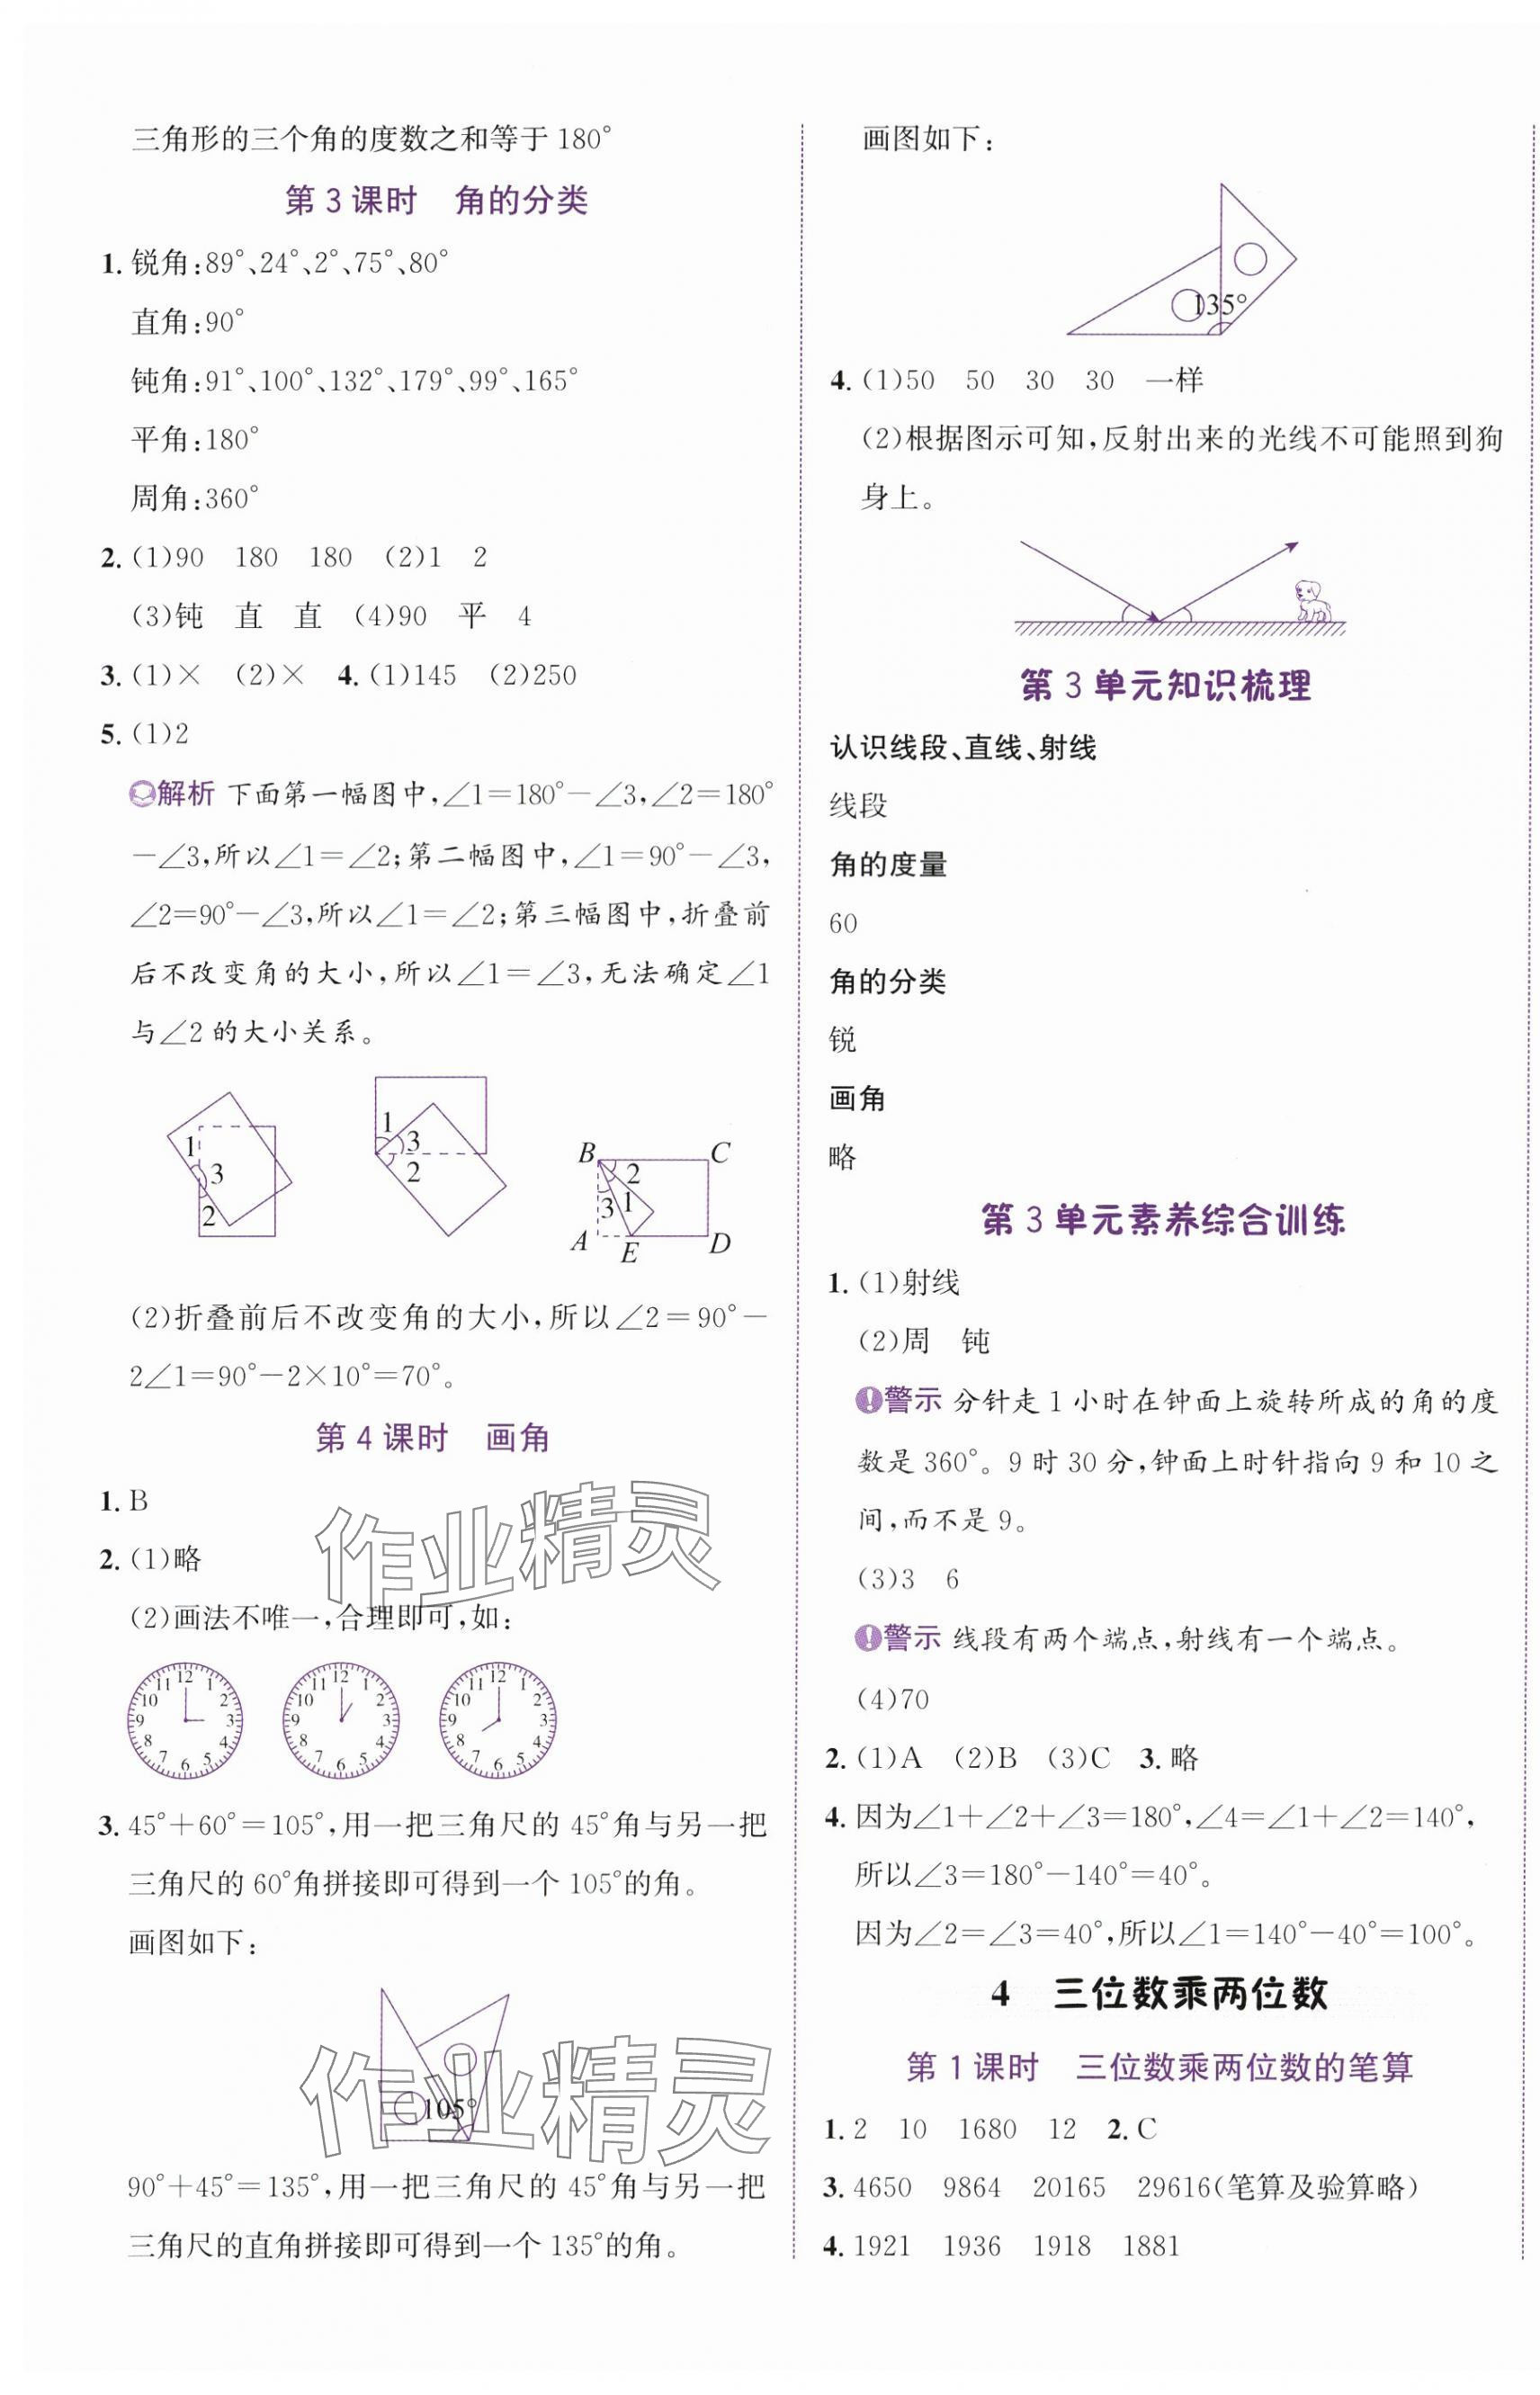 三角形的三个角的度数之和等于180°
第3课时 角的分类
1. 锐角:89°、24°、2°、75°、80°
直角:90°
钝角:91°、100°、132°、179°、99°、165°
平角:180°
周角:360°
2. (1)90 180 180 (2)1 2
(3)钝 直 直 (4)90 平 4
3. (1)× (2)× 4. (1)145 (2)250
5. (1)2
解析 下面第一幅图中,∠1=180°-∠3,∠2=180°
-∠3,所以∠1=∠2;第二幅图中,∠1=90°-∠3,
∠2=90°-∠3,所以∠1=∠2;第三幅图中,折叠前
后不改变角的大小,所以∠1=∠3,无法确定∠1
与∠2的大小关系。
1 3 2
1 3 2
B C 2 3 1 A E D
(2)折叠前后不改变角的大小,所以∠2=90°-
2∠1=90°-2×10°=70°。
第4课时 画角
1. B
2. (1)略
(2)画法不唯一,合理即可,如:
12 1 2 3 4 5 6 7 8 9 10 11
12 1 2 3 4 5 6 7 8 9 10 11
12 1 2 3 4 5 6 7 8 9 10 11
3. 45°+60°=105°,用一把三角尺的45°角与另一把
三角尺的60°角拼接即可得到一个105°的角。
画图如下:
105°
90°+45°=135°,用一把三角尺的45°角与另一把
三角尺的直角拼接即可得到一个135°的角。
作业精灵
作业精灵
画图如下:
135°
4. (1)50 50 30 30 一样
(2)根据图示可知,反射出来的光线不可能照到狗
身上。
第3单元知识梳理
认识线段、直线、射线
线段
角的度量
60
角的分类
锐
画角
略
第3单元素养综合训练
1. (1)射线
(2)周 钝
警示 分针走1小时在钟面上旋转所成的角的度
数是360°。9时30分,钟面上时针指向9和10之
间,而不是9。
(3)3 6
警示 线段有两个端点,射线有一个端点。
(4)70
2. (1)A (2)B (3)C 3. 略
4. 因为∠1+∠2+∠3=180°,∠4=∠1+∠2=140°,
所以∠3=180°-140°=40°。
因为∠2=∠3=40°,所以∠1=140°-40°=100°。
4 三位数乘两位数
第1课时 三位数乘两位数的笔算
1. 2 10 1680 12 2. C
3. 4650 9864 20165 29616(笔算及验算略)
4. 1921 1936 1918 1881